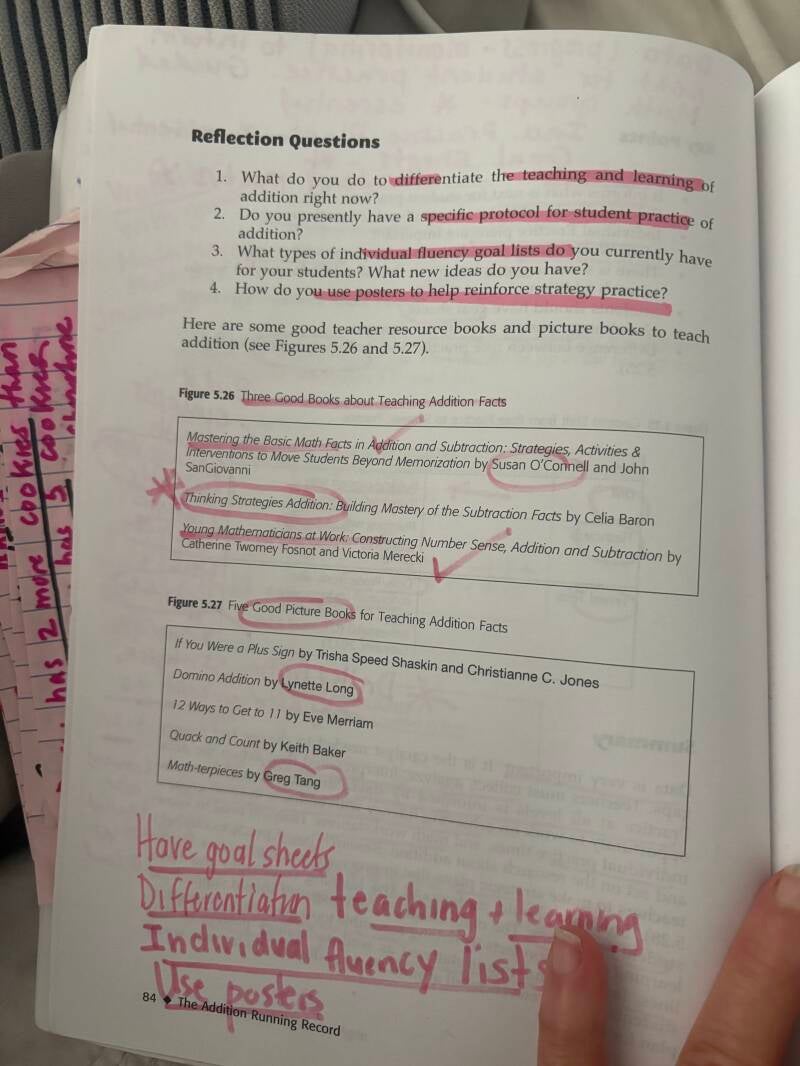 Reflection Questions
1. What do you do to differentiate the teaching and learning of
addition right now?
2. Do you presently have a specific protocol for student practice of
addition?
3. What types of individual fluency goal lists do you currently have
for your students? What new ideas do you have?
4. How do you use posters to help reinforce strategy practice?
Here are some good teacher resource books and picture books to teach
addition (see Figures 5.26 and 5.27).
Figure 5.26 Three Good Books about Teaching Addition Facts
Mastering the Basic Math Facts in Addition and Subtraction: Strategies, Activities &
Interventions to Move Students Beyond Memorization by Susan O'Connell and John
SanGiovanni
Thinking Strategies Addition: Building Mastery of the Subtraction Facts by Celia Baron
Young Mathematicians at Work: Constructing Number Sense, Addition and Subtraction by
Catherine Twomey Fosnot and Victoria Merecki
Figure 5.27 Five Good Picture Books for Teaching Addition Facts
If You Were a Plus Sign by Trisha Speed Shaskin and Christianne C. Jones
Domino Addition by Lynette Long
12 Ways to Get to 11 by Eve Merriam
Quack and Count by Keith Baker
Math-terpieces by Greg Tang
Have goal sheets
Differentiation teaching + learning
Individual fluency lists
Use posters
84 ◆ The Addition Running Record
than
has 2 more cookies
has 5 cookies